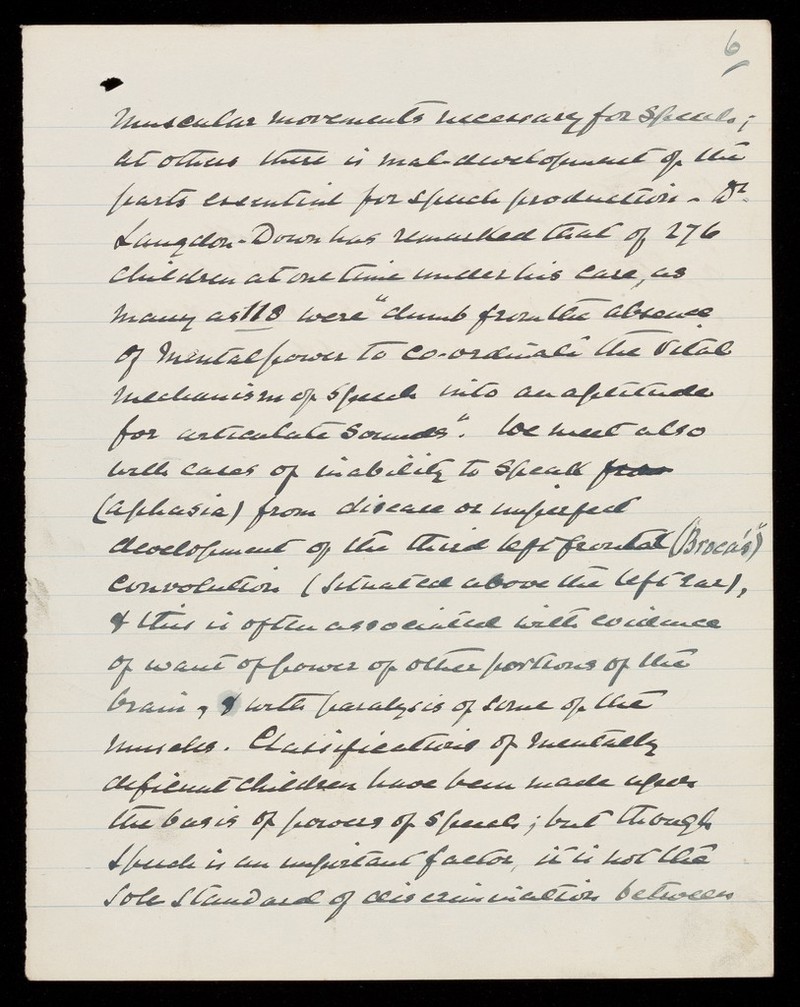 6
muscular movements necessary for speech;
at others there is mal-development of the
parts essential for speech production - Dr.
Langdon-Down has remarked that of 276
children at one time under his care, as
many as 118 were "dumb from the absence
of mental power to co-ordinate the vital
mechanism of speech into an aptitude
for articulate sounds". We meet also
with cases of inability to speak from
(aphasia) from disease or imperfect
development of the third left frontal (Broca's")
convolution (situated above the left ear),
& this is often associated with evidence
of want of power of other portions of the
brain, & with paralysis of some of the
muscles. Classifications of mentally
deficient children have been made upon
the basis of powers of speech; but though
speech is an important factor, it is not the
sole standard of discrimination between